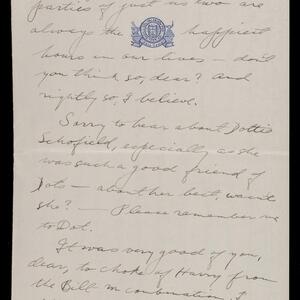 parties of just us two are
always the happiest
hours in our lives — don't
you think so, dear? And
rightly so, I believe.
Sorry to hear about Dottie
Schofield, especially as she
was such a good friend of
Dots — about her best, wasn't
she? — Please remember me
to Dot.
It was very good of you,
dear, to choke off Harry from
the Bill M combination. I